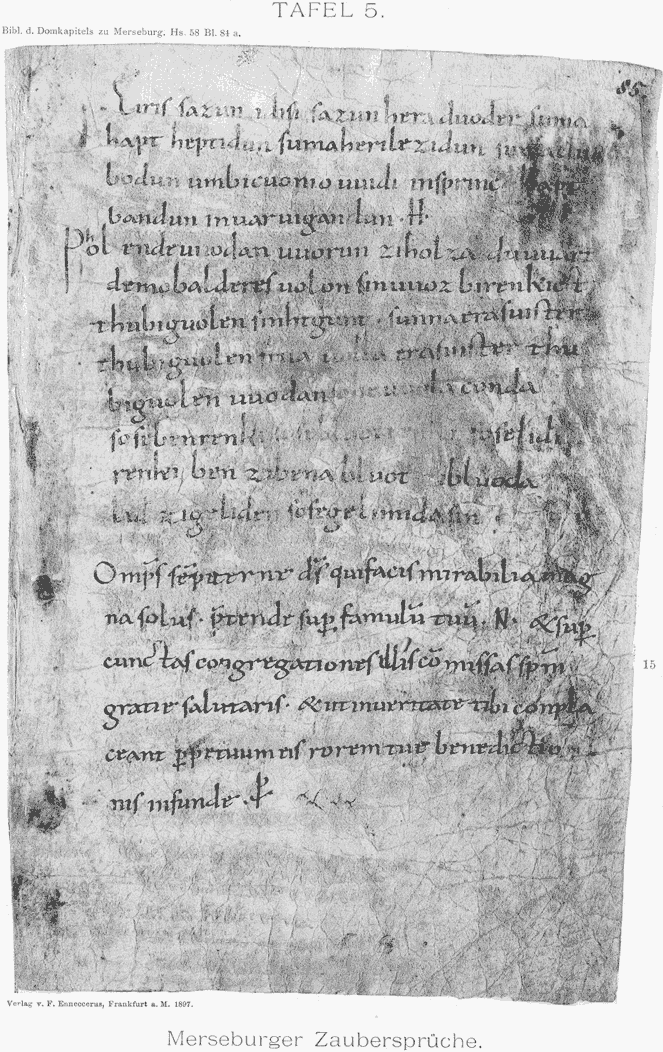 TAFEL 5.
Bibl. d. Domkapitels zu Merseburg. Hs. 58 Bl. 84 a.
85.
Eiris sazun idisi sazun hera duoder suma
hapt heptidun sumaherilezidun sumaclu
bodun umbicuonio uuidi insprinc hapt
bandun inuar uigandun · H ·
Phol endeuuodan uuorun ziholza du uuart
demobalderes uolon sinuuoz birenkict
thubiguolen sinhtgunt · sunnaerasuister
thubiguolen friia uolla erasuister thu
biguolen uuodan sohe uuola conda
sosebenrenki sosebluotrenki soselidi
renki ben zibena bluot zibluoda
lid zigeliden sosegelimidasin
Omps sempiterne ds quifacis mirabilia mag
na solus · ptende sup famulu tuu · N · &sup
cunctas congregationes illis comissas spm
gratie salutaris · &utinueritate tibi conpla
ceant ppetuum eis rorem tue benedictio
nis infunde ·
15
Verlag v. F. Enneccerus, Frankfurt a. M. 1897.
Merseburger Zaubersprüche.